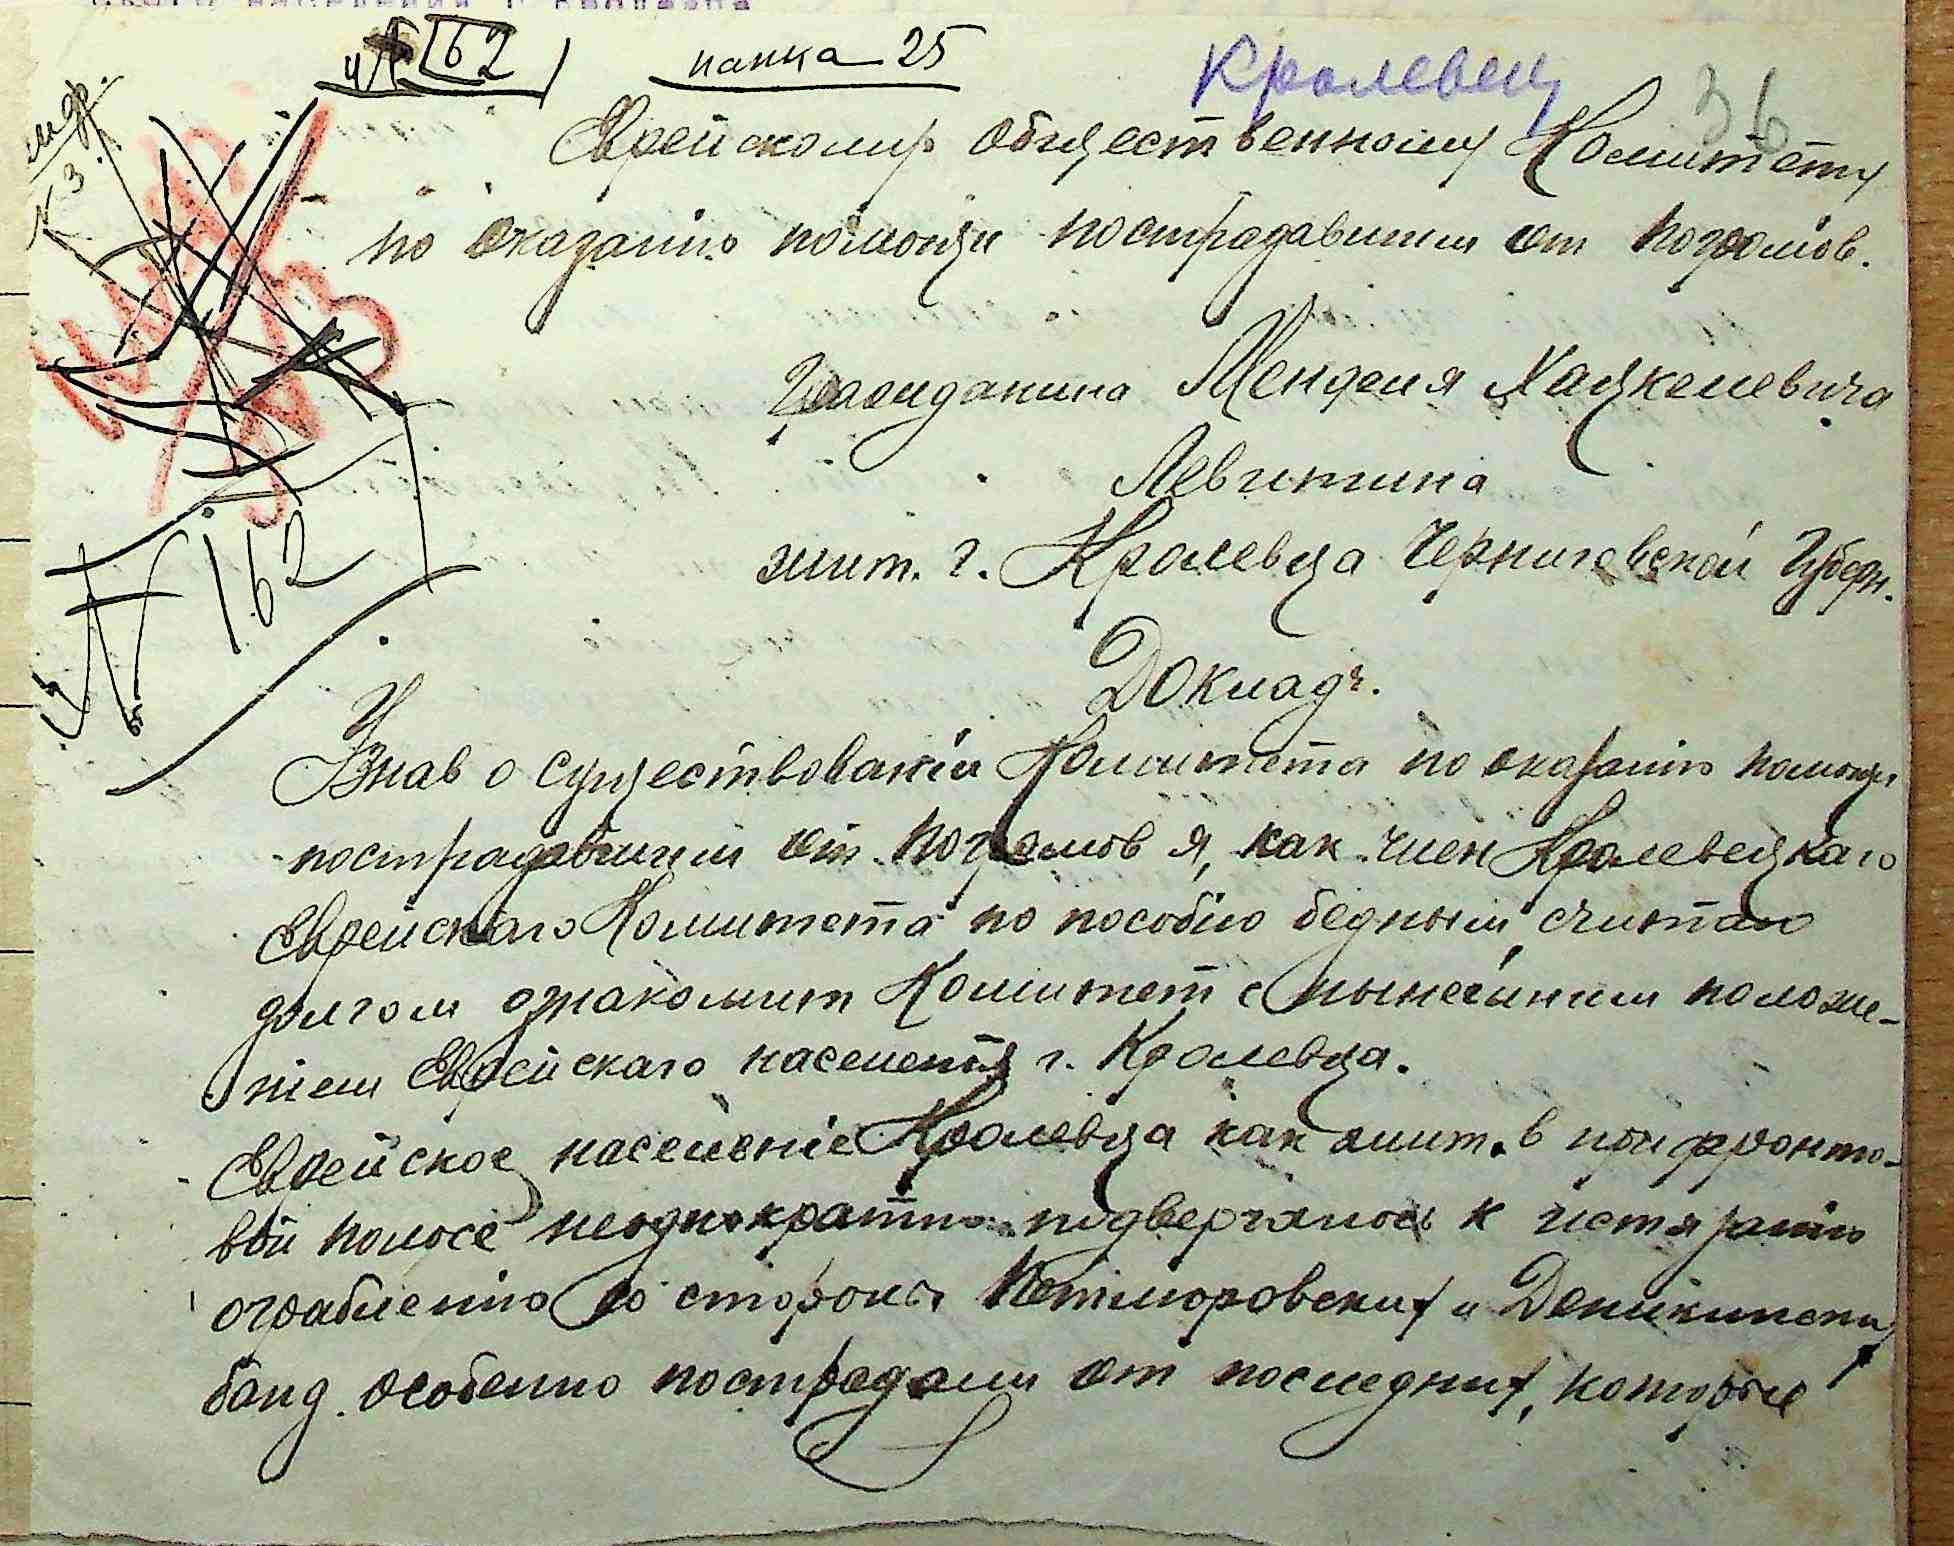 162
папка 25
Кролевец
36
Еврейскому Общественному Комитету
по оказанію помощи пострадавшим от погромов.
Гражданина Менделя Хацкелевича
Левитина
жит. г. Кролевца Черниговской Губерн.
Докладъ.
N 162
Узнав о существованіи Комитета по оказанію помощи
пострадавшим от погромов я, как член Кролевецкаго
Еврейскаго Комитета по пособію бедным, считаю
долгом ознакомит Комитет с нынешним положе-
ніем Еврейскаго населенія г. Кролевца.
Еврейское населеніе Кролевца как жит. в прифронто-
вой полосе неоднократно подвергалось к истязанію
ограбленію со стороны Петлюровских и Деникински
банд. Особенно пострадали от последних, которые